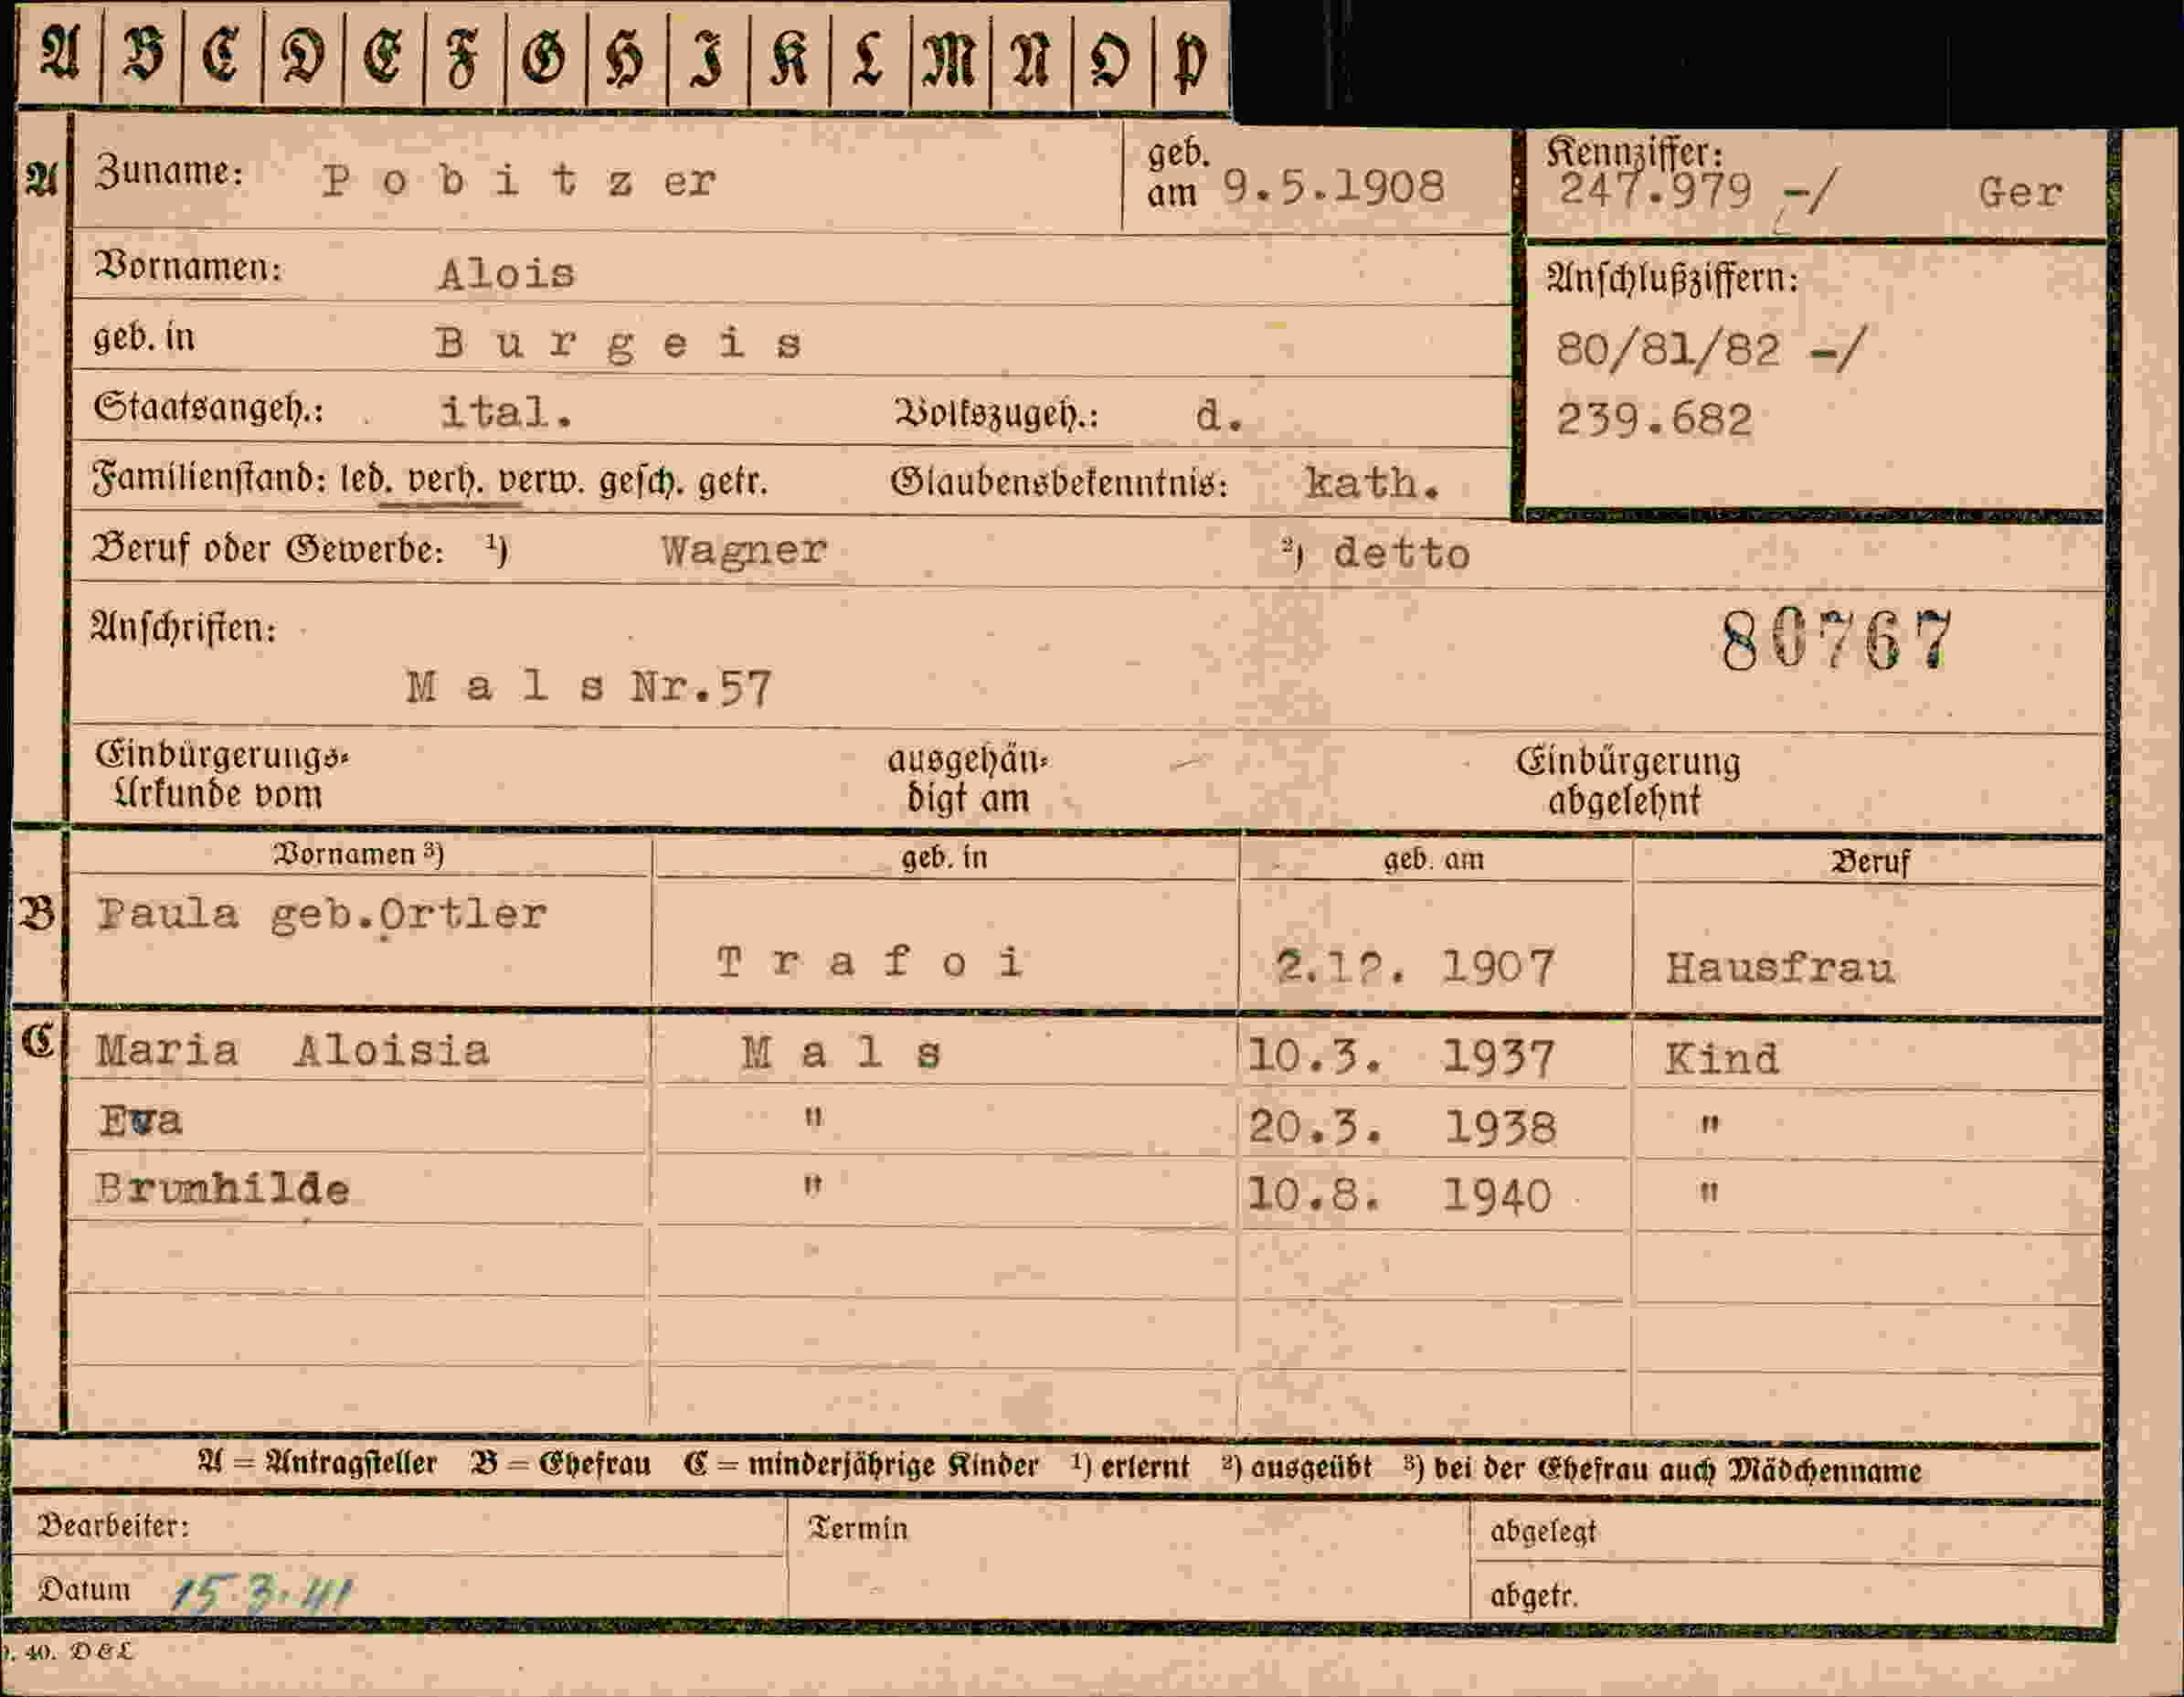 A B C D E F G H I K L M N O P
A Zuname: Pobitzer geb. am 9.5.1908 Kennziffer: 247.979 -/ Ger
Vornamen: Alois Anschlußziffern:
geb. in Burgeis 80/81/82 -/
Staatsangeh.: ital. Volkszugeh.: d. 239.682
Familienstand: led. verh. verw. gesch. getr. Glaubensbekenntnis: kath.
Beruf oder Gewerbe: ¹) Wagner ²) detto
Anschriften: 80767
Mals Nr.57
Einbürgerungs- ausgehän- Einbürgerung
Urkunde vom digt am abgelehnt
Vornamen ³) geb. in geb. am Beruf
B Paula geb.Ortler
Trafoi 2.12. 1907 Hausfrau
C Maria Aloisia Mals 10.3. 1937 Kind
Eva " 20.3. 1938 "
Brunhilde " 10.8. 1940 "
A = Antragsteller B = Ehefrau C = minderjährige Kinder ¹) erlernt ²) ausgeübt ³) bei der Ehefrau auch Mädchenname
Bearbeiter: Termin abgelegt
Datum 15.3.41 abgetr.
40. D&L